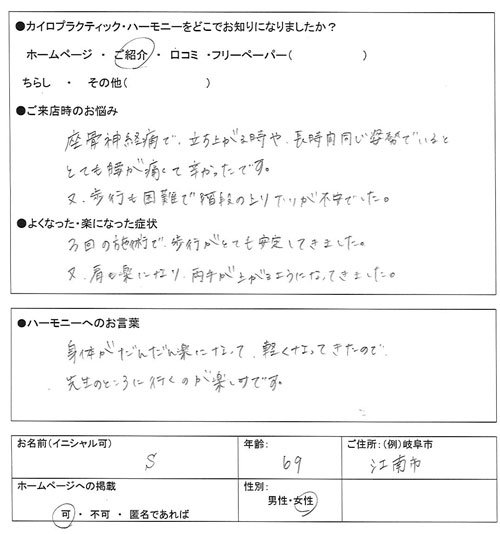 ●カイロプラクティック・ハーモニーをどこでお知りになりましたか?
ホームページ ・ ご紹介 ・ 口コミ ・フリーペーパー(　　　　)
ちらし ・ その他(　　　　)
●ご来店時のお悩み
座骨神経痛で、立ち上がる時や、長時間同じ姿勢でいると
とても腰が痛くて辛かったです。
又、歩行も困難で階段の上り下りが不安でした。
●よくなった・楽になった症状
3回の施術で、歩行がとても安定してきました。
又、肩も楽になり、両手が上がるようになってきました。
●ハーモニーへのお言葉
身体がだんだん楽になって、軽くなってきたので、
先生のところに行くのが楽しみです。
お名前(イニシャル可) 年齢: ご住所:(例)岐阜市
S 69 江南市
ホームページへの掲載 性別:
可 ・ 不可 ・ 匿名であれば 男性・女性